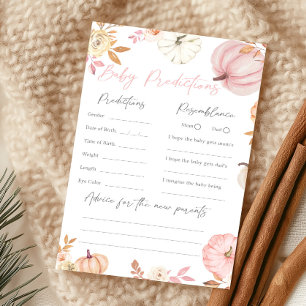 Baby Predictions
Predictions
Gender
Date of Birth
Time of Birth
Weight
Length
Eye Color
Resemblance
Mom Dad
I hope the baby gets mom's
I hope the baby gets dad's
I imagine the baby being
Advice for the new parents